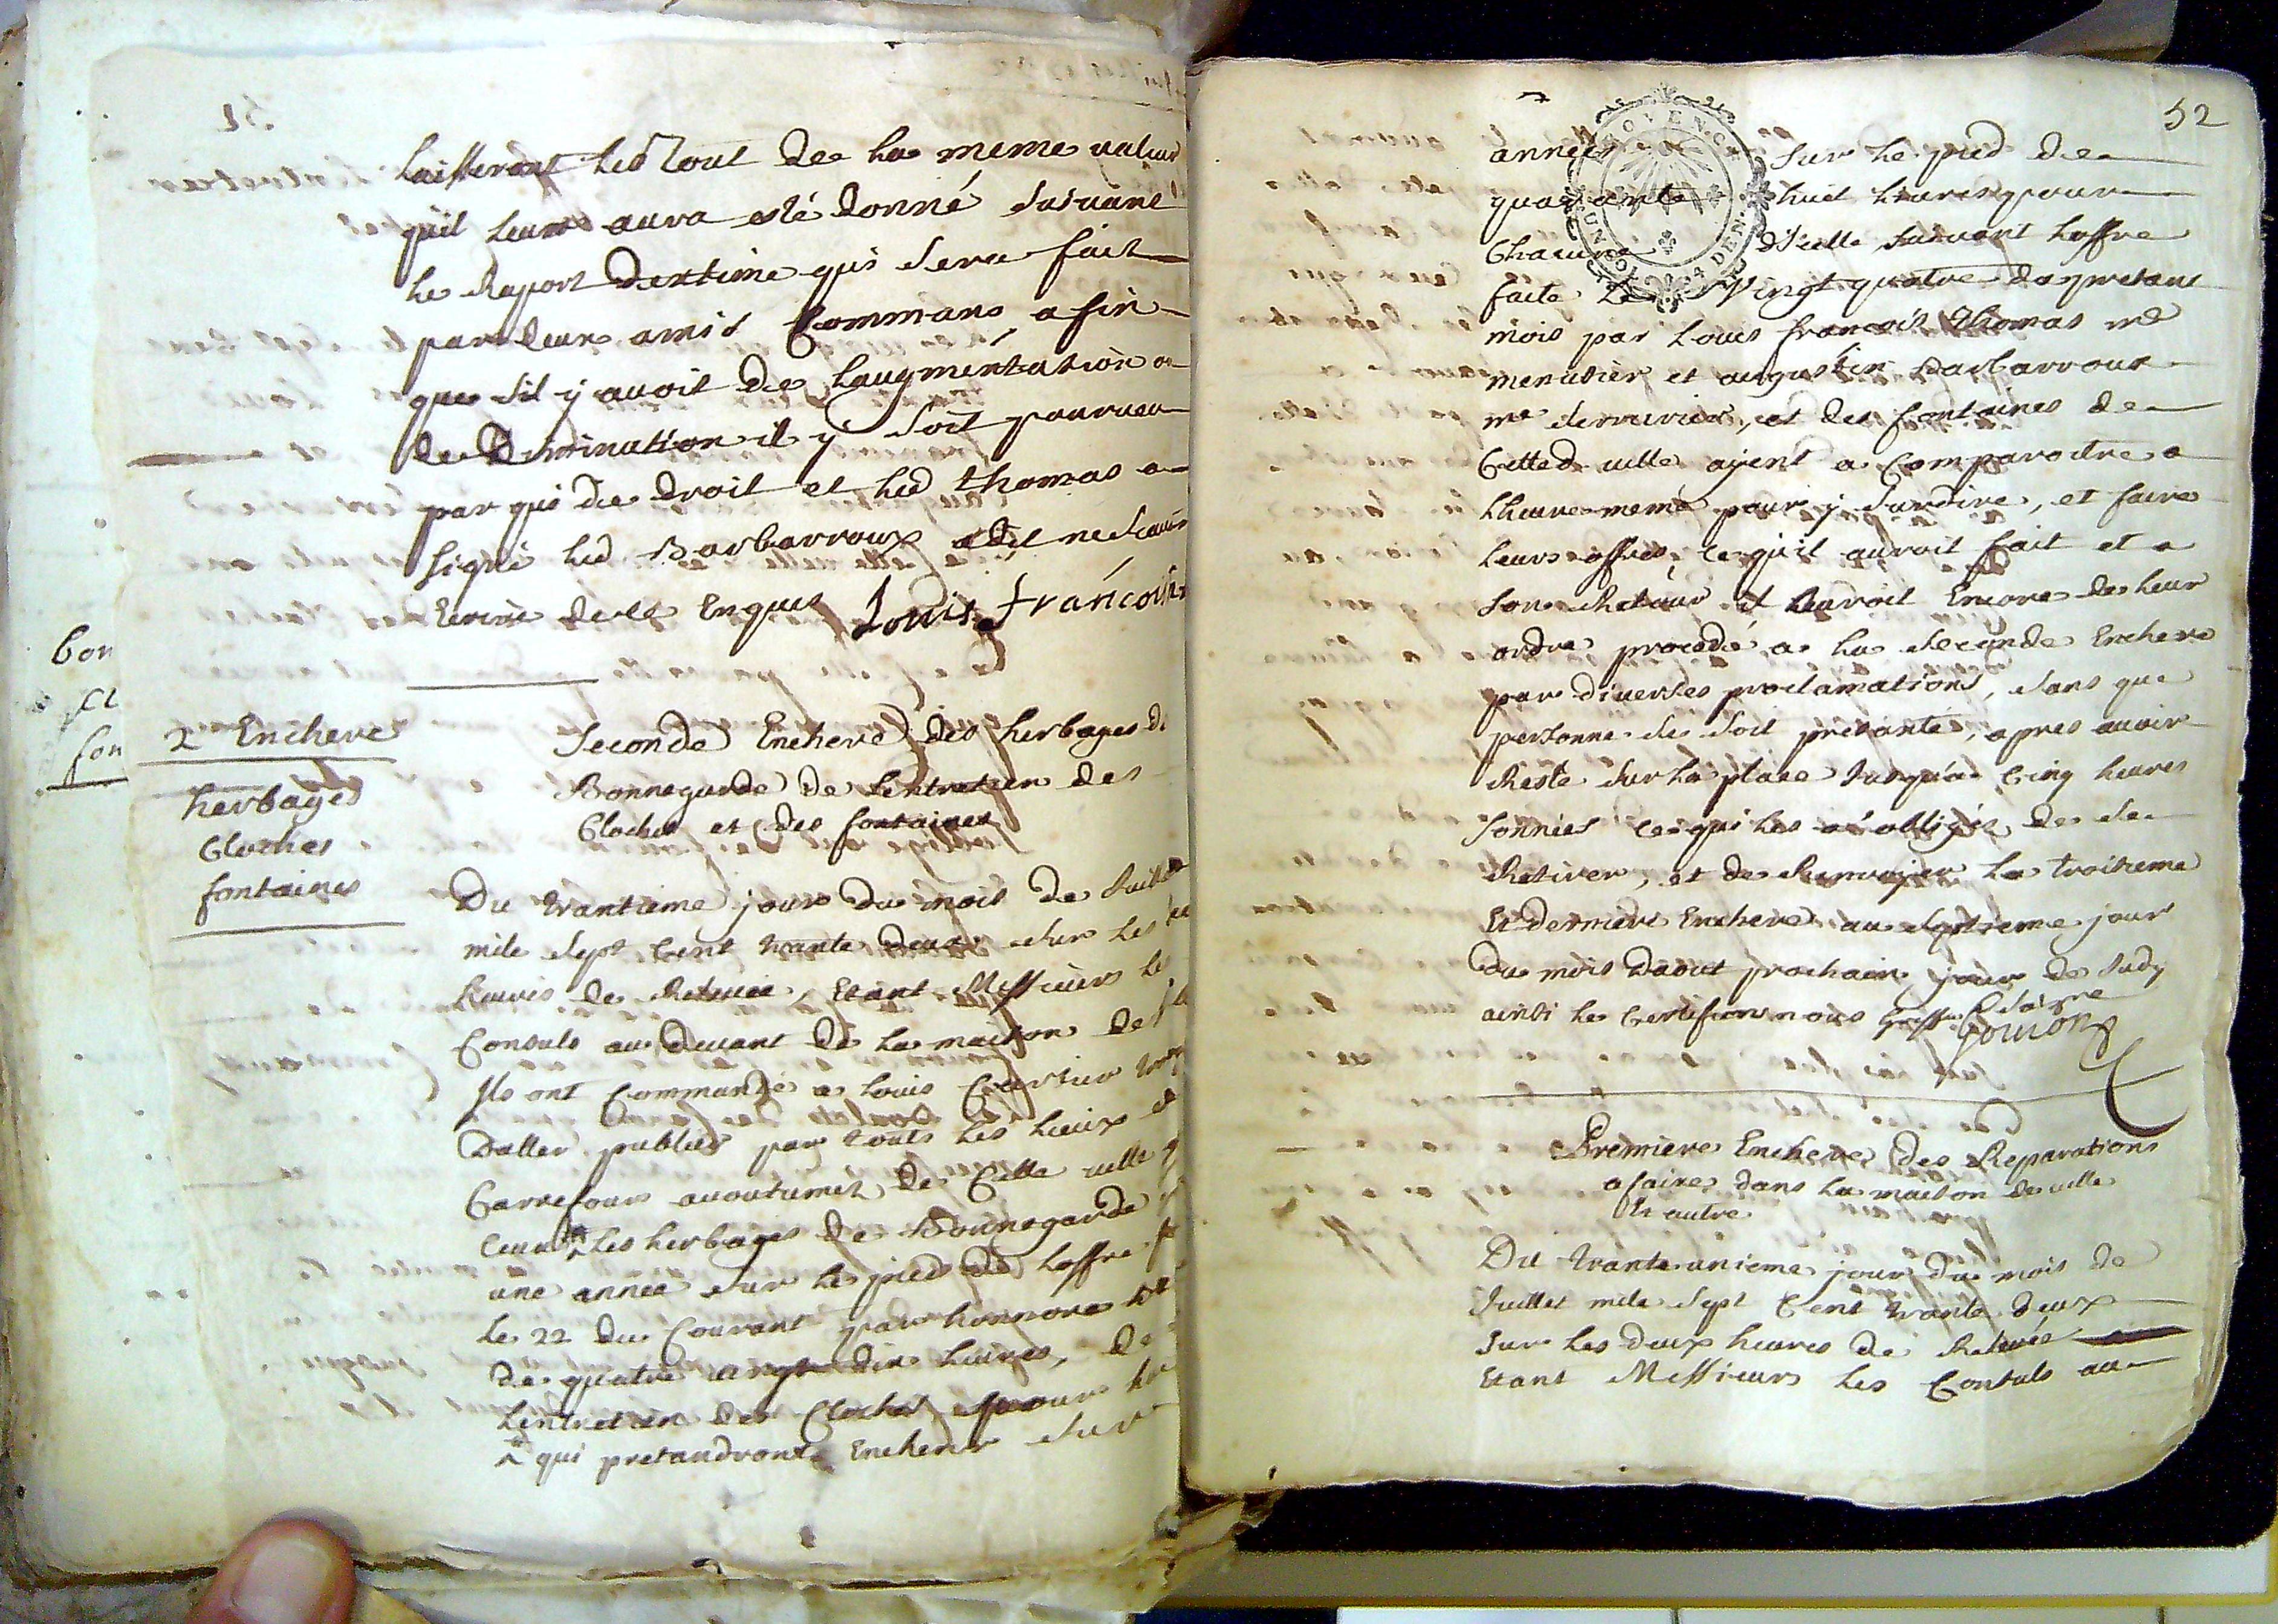 laisseront led tout de la meme valeur
quil leur aura esté donné suivant
le raport destime qui sera fait
par leurs amis commans afin
que sil y avoit de laugmentation ou
de diminution il y soit pourveu
par qui de droit et led thomas a
signé led Barbarroux a dit ne scavoir
Ecrire de ce enquis Louis francois
2e Enchere
herbages
Cloches
fontaines
Seconde Enchere des herbages de
Bonnegarde de Lentretien des
Cloches et des fontaines
Du trantieme jour du mois de Juillet
mile sept cent trante deux sur les
heures de Relevée, Etant Messieurs les
Consuls au devant de la maison de
Ils ont commandé a louis
Daller publier par touts les lieux et
Carrefours accoutumés de Cette ville
ceux les herbages de Bonnegarde
une année sur le pied de loffre
le 22 du Courant par honnore
de quatre vingt dix livres, de
lentretien des Cloches pour
qui pretandront Encherir sur
52
années sur le pied de
quarante huit livres pour
Chacune d'Icelle suivant loffre
faite le Vingt quatre du presant
mois par Louis francois Thomas me
menuisier et augustin Barbarroux
me serrurier, et des fontaines de
Cette d. ville ayent a Comparoitre a
Lheure meme pour y surdire, et faire
leurs offres ce quil auroit fait et a
son Retour il auroit Encore de leur
ordre procedé a la seconde Enchere
par diverses proclamations, sans que
personne se soit presanté, apres avoir
Resté sur la place Jusqu'a Cinq heures
sonnées ce qui les a obligés de se
Retirer, et de Renvoyer la troisieme
Et derniere Enchere au septieme jour
du mois Daout prochain jour de Judy
ainsi le Certifions nous greffier soussigné
Premiere Enchere des Reparations
a faire dans la maison de ville
Et autre
Du trante unieme jour du mois de
Juillet mile sept Cent trante deux
sur les deux heures de Relevée
Etant Messieurs les Consuls au